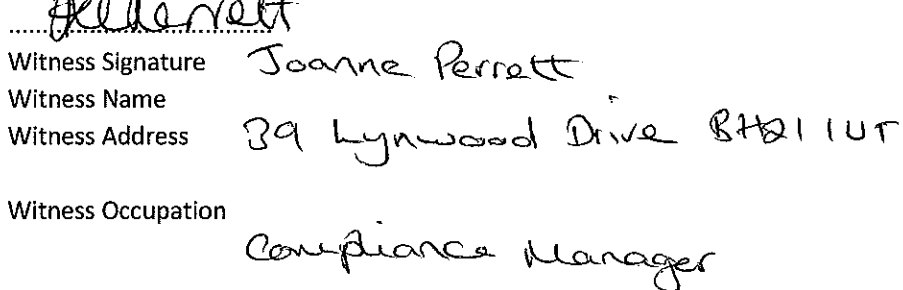 Witness Signature Joanne Perrett
Witness Name
Witness Address 39 Lynwood Drive BH21 1UT
Witness Occupation
Compliance Manager